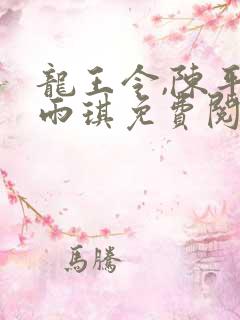 龍王令,陳平
雨琪免費閱
馬騰